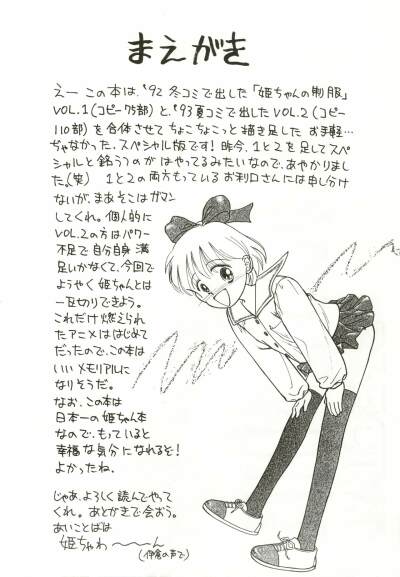 まえがき
えー この本は、'92 冬コミで出した「姫ちゃんの制服」
VOL.1(コピー75部)と、'93夏コミで出したVOL.2(コピー
110部)を合体させて ちょこちょこっと描き足した お手軽…
ちゃなかった、スペシャル版です!昨今、1と2を足してスペ
シャルと銘うつのが はやってるみたいなので、あやかりまし
た。(笑) 1と2の両方もっているお利口さんには申し分け
ないが、まあそこはガマン
してくれ。個人的に
VOL.2の方はパワー
不足で自分自身 満
足いかなくて、今回で
ようやく姫ちゃんとは
一区切りできよう。
これだけ燃えられ
たアニメははじめて
だったので、この本は
いい メモリアルに
なりそうだ。
なお、この本は
日本一の姫ちゃん本
なので、もっていると
幸福な気分になれるぞ!
よかったね、
じゃあ、よろしく読んでやって
くれ。あとがきで会おう。
あいことばは
姫ちゃわ〜〜〜ん
(伊倉の声で)